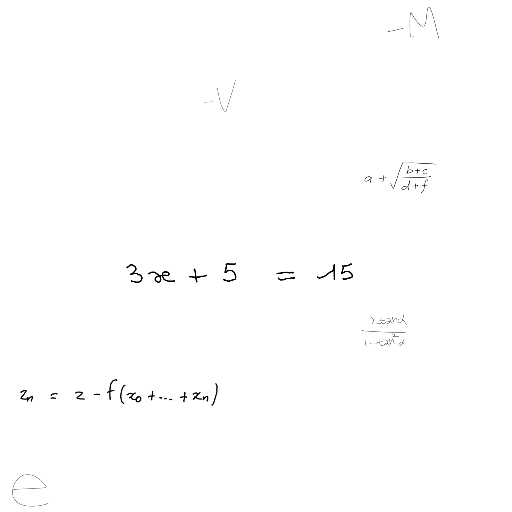 -M
-V
a + √((b+c)/(d+f))
3x + 5 = 15
(2 tan α)/(1 - tan² α)
z_n = z - f(x_0 + ... + x_n)
e